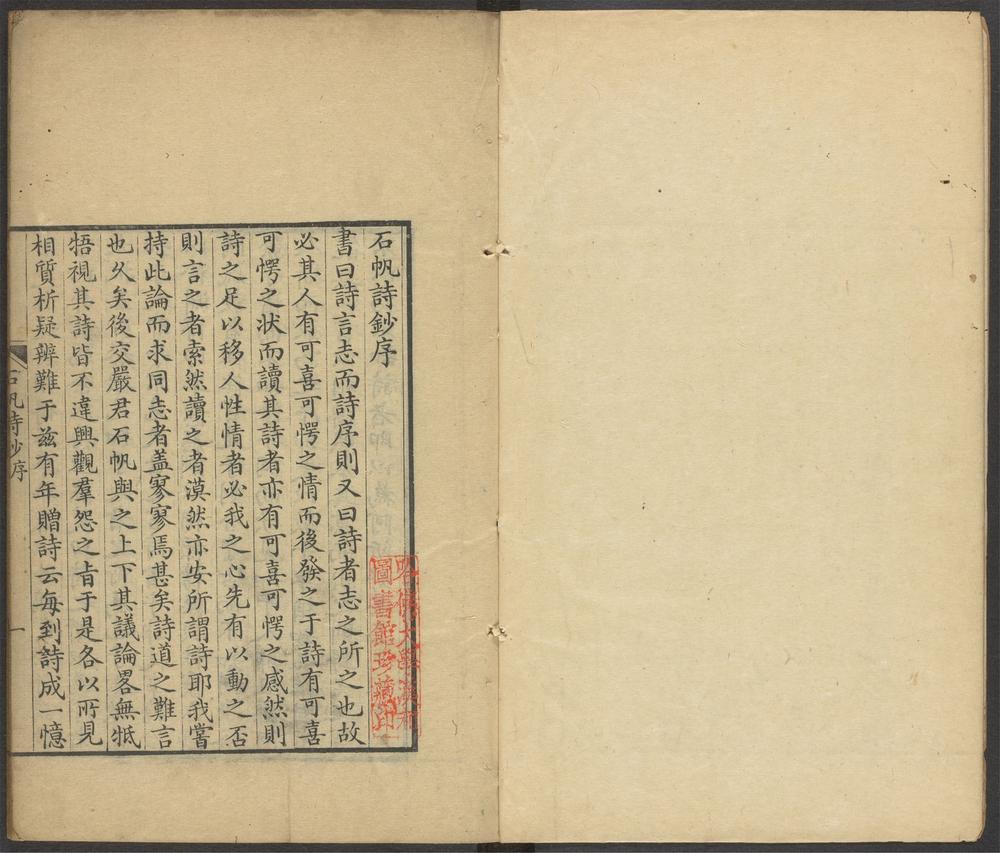 石帆詩鈔序
書曰詩言志而詩序則又曰詩者志之所之也故
必其人有可喜可愕之情而後發之于詩有可喜
可愕之状而讀其詩者亦有可喜可愕之感然則
詩之足以移人性情者必我之心先有以動之否
則言之者索然讀之者漠然亦安所謂詩耶我嘗
持此論而求同志者盖寥寥焉甚矣詩道之難言
也久矣後交嚴君石帆與之上下其議論畧無牴
牾視其詩皆不違興觀羣怨之旨于是各以所見
相質析疑辨難于兹有年贈詩云每到詩成一憶
石帆詩鈔序
一
哈佛大學漢和
圖書館珍藏印